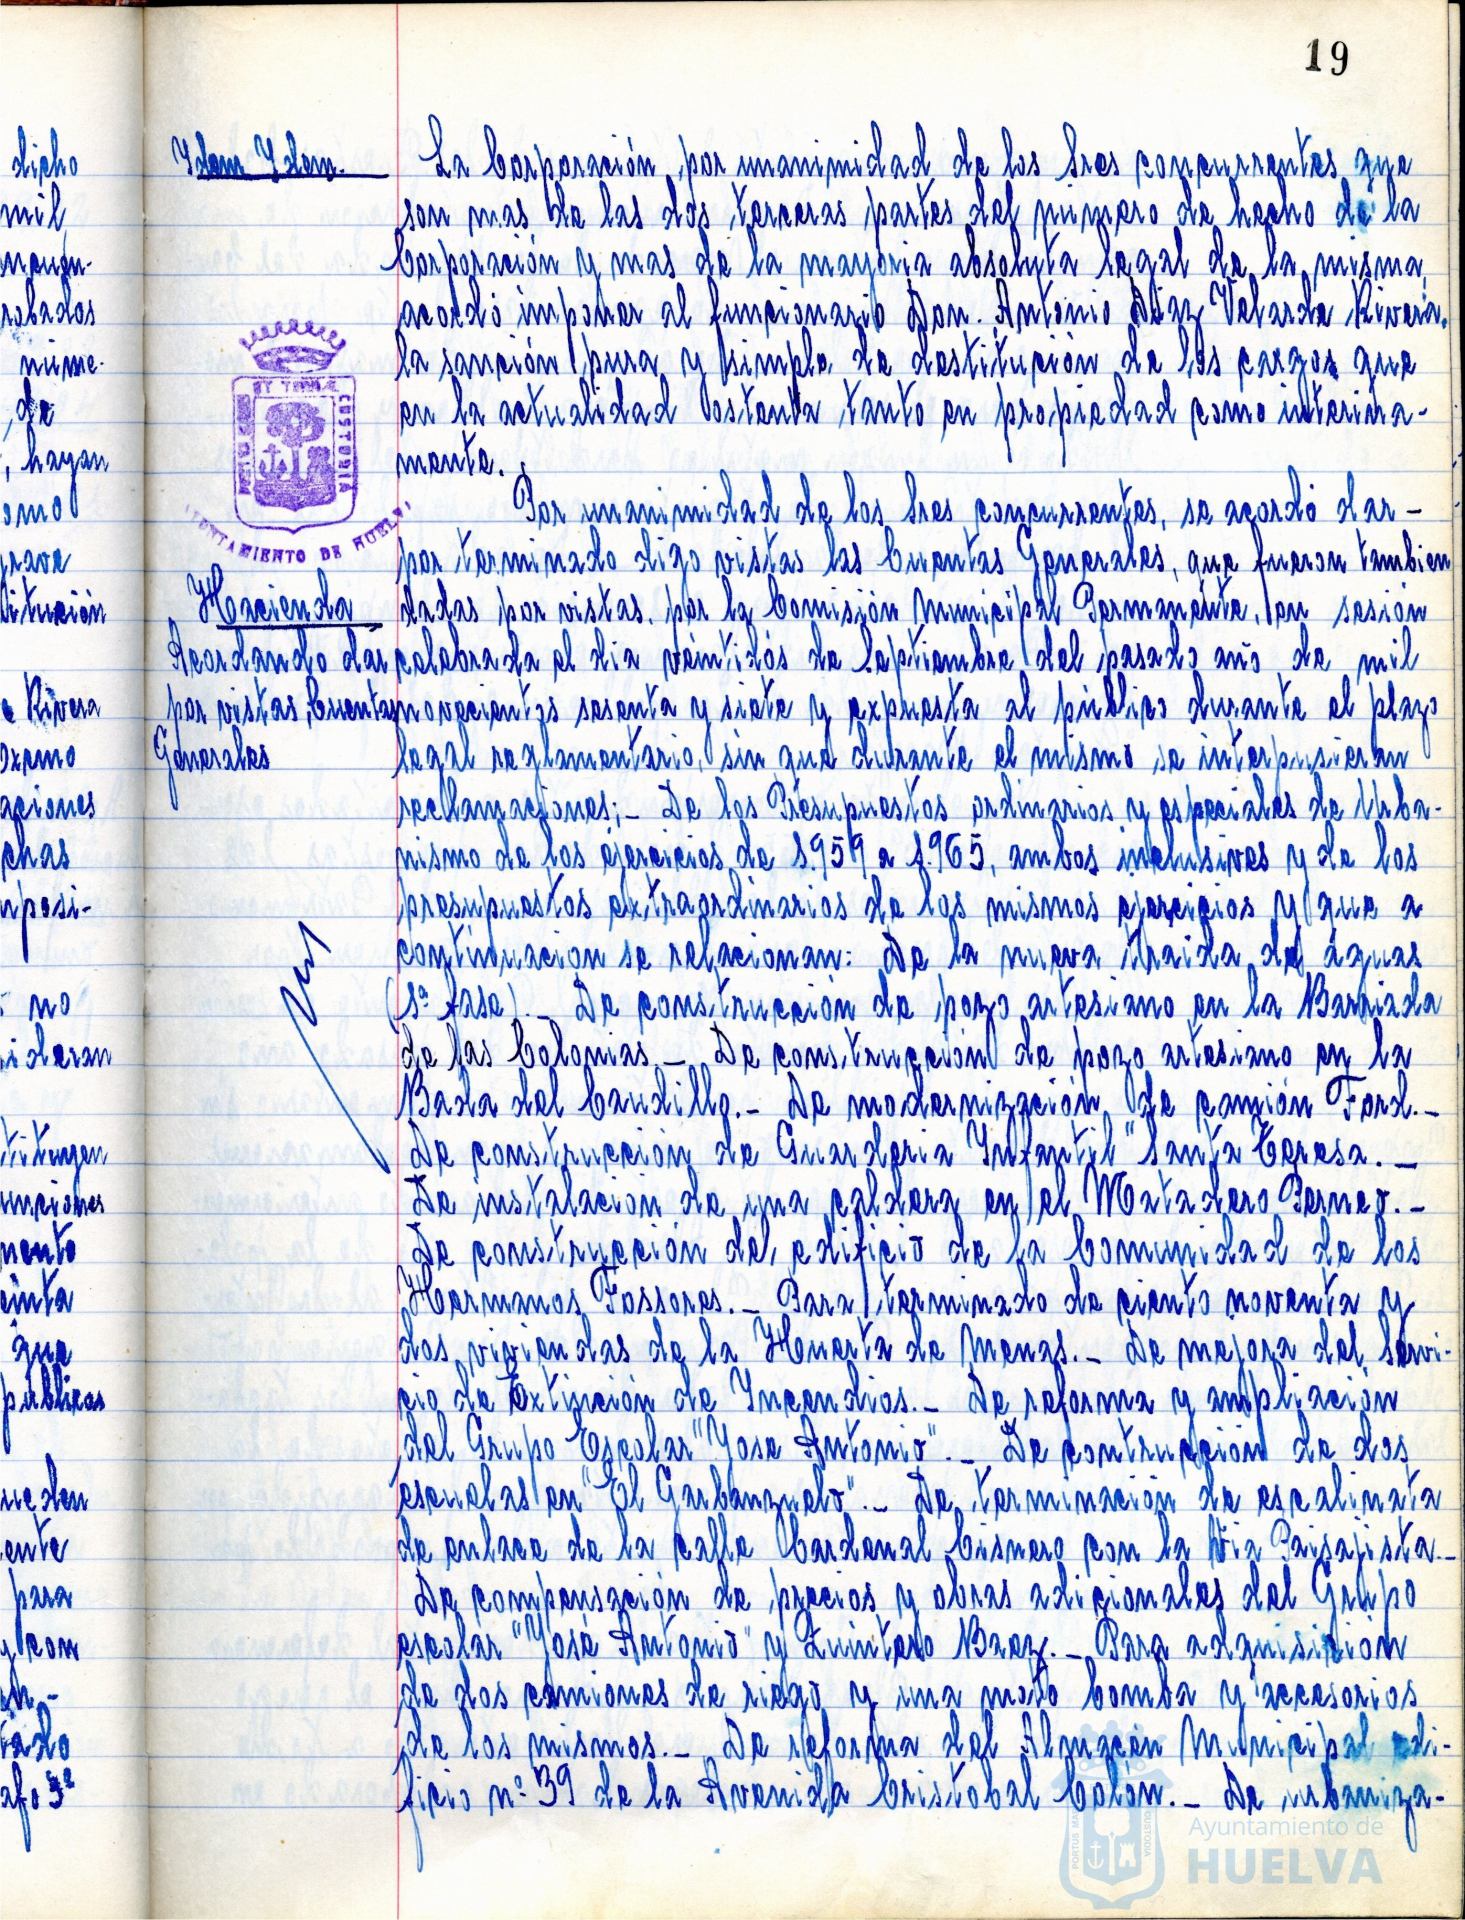 19
Idem Idem.
La Corporación, por unanimidad de los Sres concurrentes que
son mas de las dos terceras partes del número de hecho de la
Corporación y mas de la mayoria absoluta legal de la misma,
acordó imponer al funcionario Don. Antonio Diaz Velarde Rivera,
la sanción pura y simple de destitución de los cargos que
en la actualidad ostenta tanto en propiedad como interina-
mente.
Por unanimidad de los Sres concurrentes, se acordó dar-
por terminado digo vistas las Cuentas Generales, que fueron tambien
dadas por vistas, por la Comisión Municipal Permanente, en sesión
celebrada el dia veintidós de Septiembre del pasado año de mil
novecientos sesenta y siete y expuesta al público durante el plazo
legal reglamentario, sin que durante el mismo se interpusieran
reclamaciones;- De los Presupuestos ordinarios y especiales de Urba-
nismo de los ejercicios de 1.959 a 1.965, ambos inclusives y de los
presupuestos extraordinarios de los mismos ejercicios y que a
continuación se relacionan: De la nueva traida de aguas
(1ª fase).- De construcción de pozo artesiano en la Barriada
de las Colonias.- De construcción de pozo artesiano en la
Bada del Caudillo.- De modernización de camión Ford.-
De construcción de Guarderia Infantil "Santa Teresa.-
De instalación de una caldera en el Matadero Perneo.-
De construcción del edificio de la Comunidad de los
Hermanos Fossores.- Para terminado de ciento noventa y
dos viviendas de la Huerta de Menas.- De mejora del Servi-
cio de Extinción de Incendios.- De reforma y ampliación
del Grupo Escolar "Jose Antonio".- De contrucción de dos
escuelas en "El Garbanzuelo".- De terminación de escalinata
de enlace de la calle Cardenal Cisnero con la Via Paisajista.-
De compensación de precios y obras adicionales del Grupo
escolar "José Antonio" y Quintero Baez.- Para adquisición
de dos camiones de riego y una moto bomba y accesorios
de los mismos.- De reforma del Almacén Municipal edi-
ficio nº 39 de la Avenida Cristobal Colón.- De urbaniza-
Hacienda
Acordando dar
por vistas Cuentas
Generales
AYUNTAMIENTO DE HUELVA
CUSTODIA
dicho
mil
robados
núme-
de
, hayan
omo
grave
titución
e Rivera
aciones
chas
no
unciones
mento
einta
que
públicas
ente
para
y con
Ayuntamiento de
HUELVA
PORTUS MA
CUSTODIA